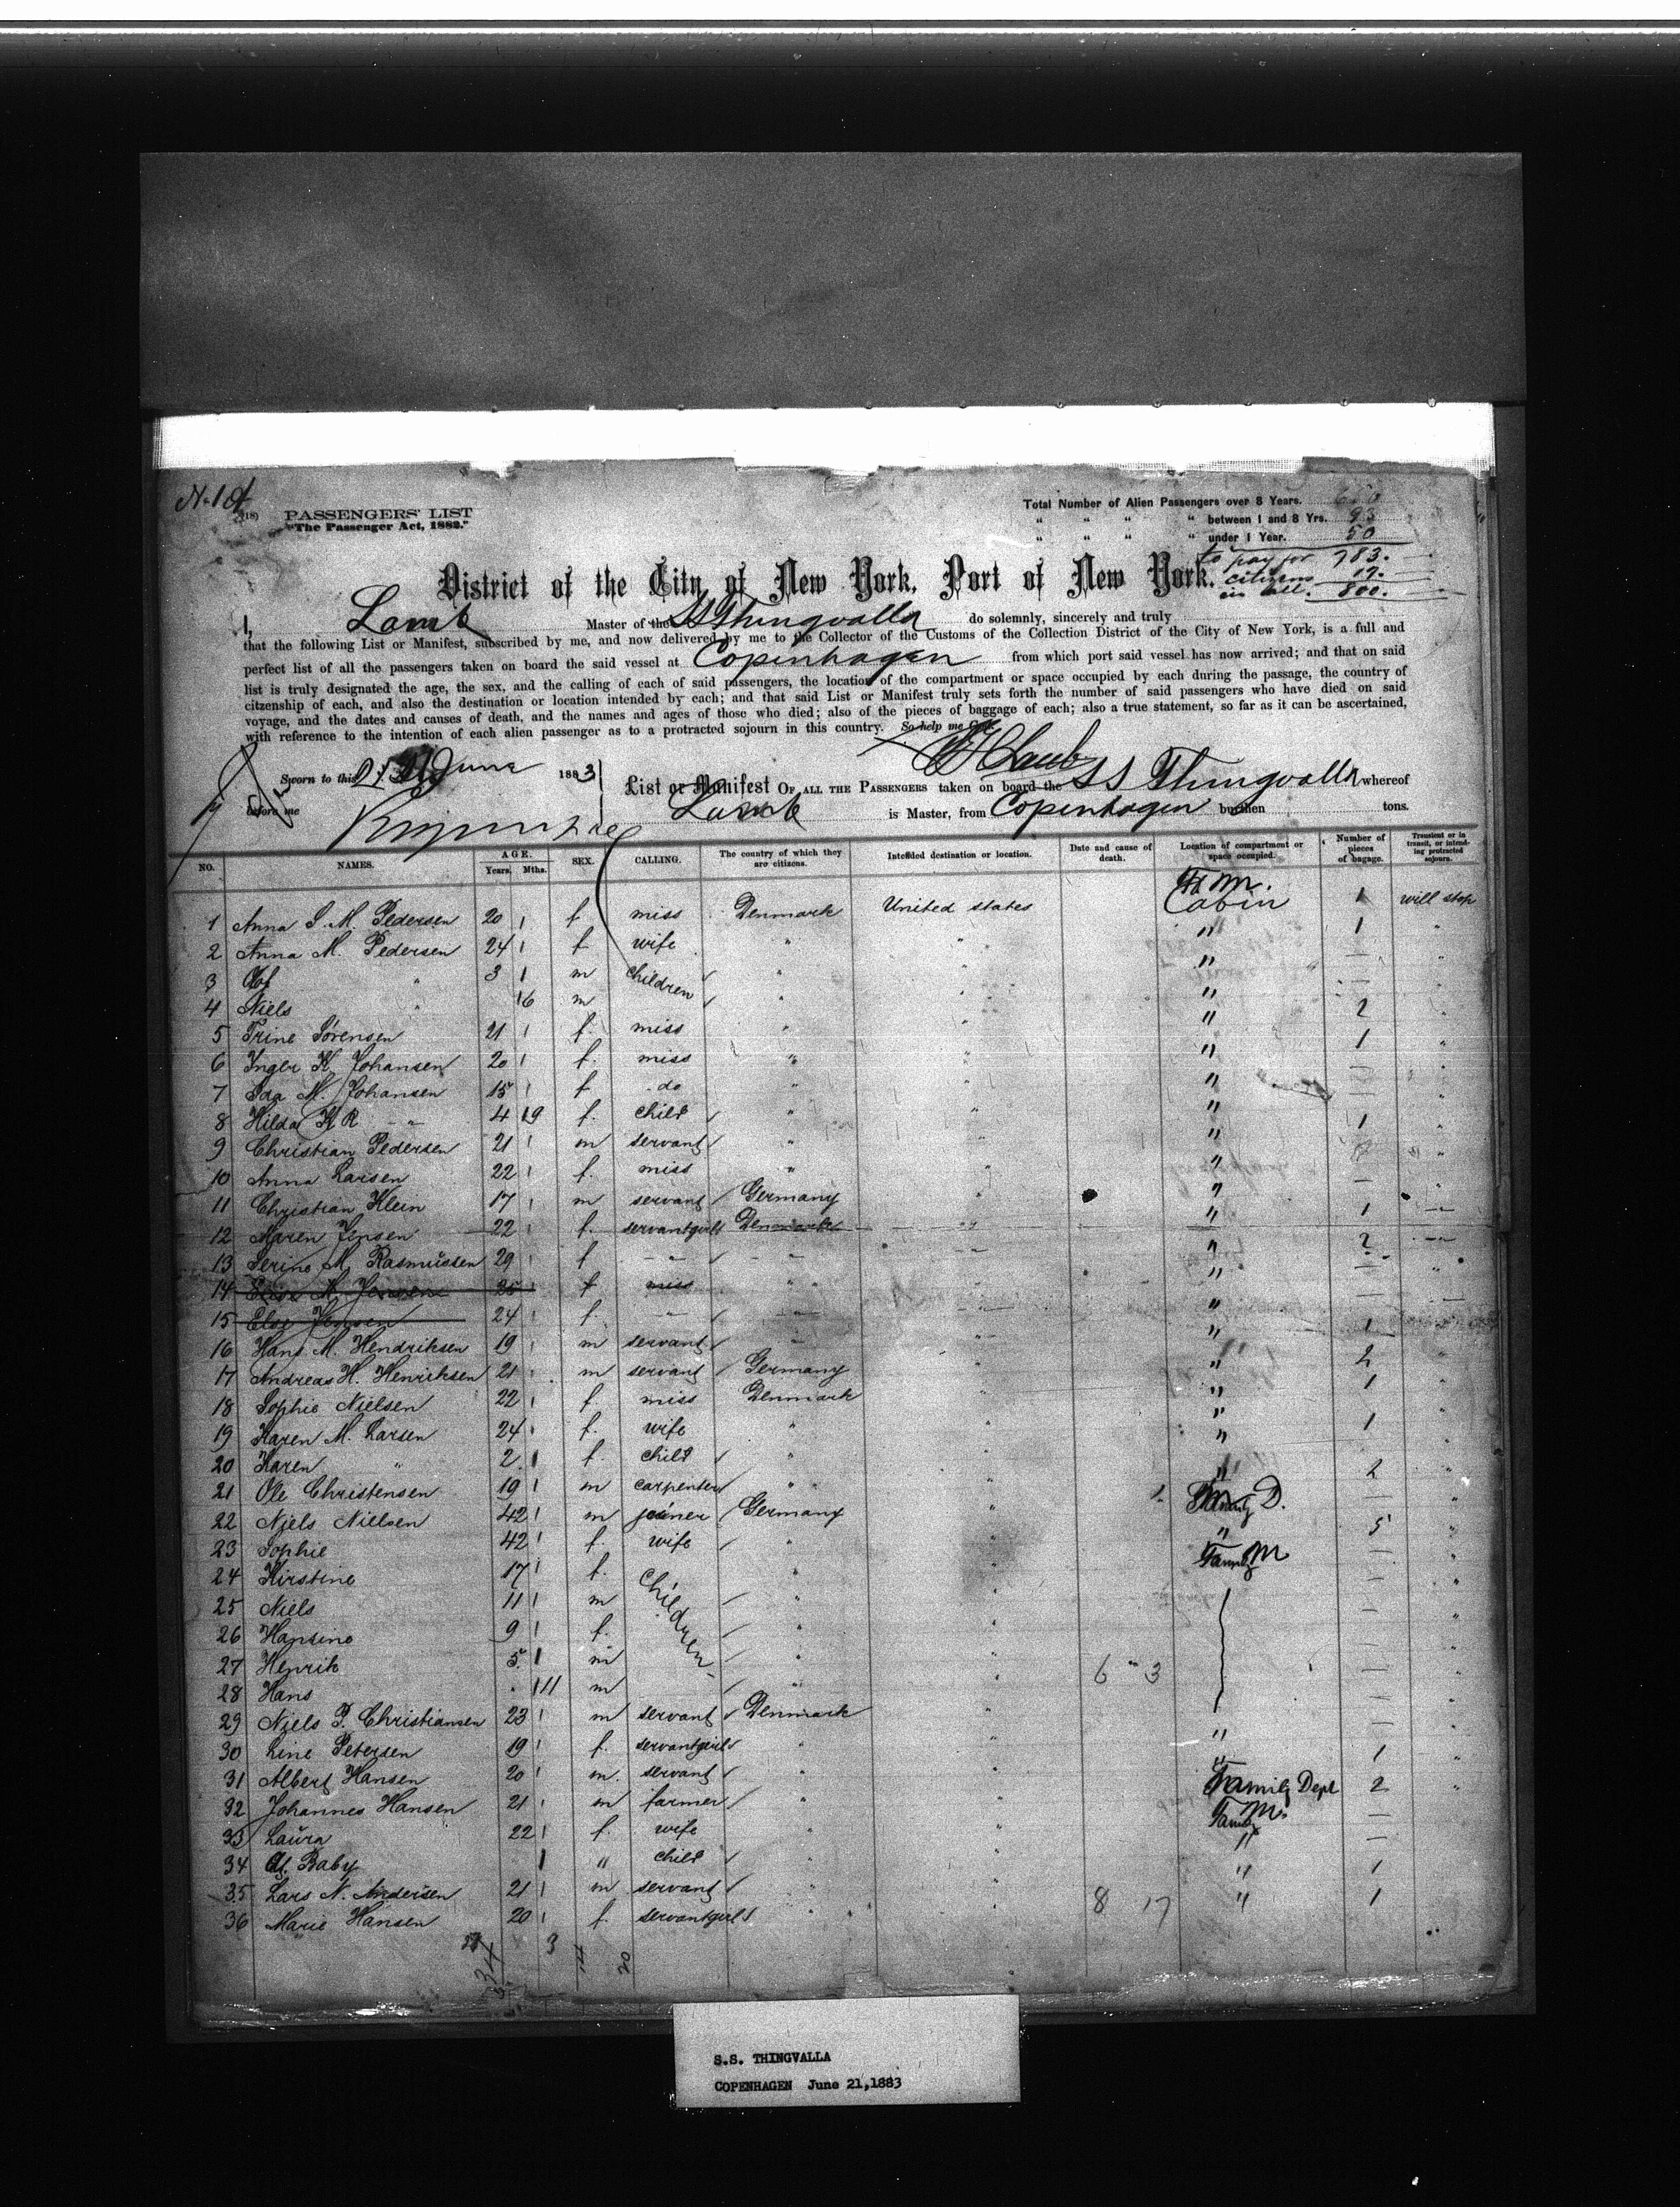 PASSENGERS' LIST
"The Passenger Act, 1882."
Total Number of Alien Passengers over 8 Years.
" " " " between 1 and 8 Yrs. 93
" " " " under 1 Year. 50
to pay for 783.
citizens 17.
in all. 800.
District of the City of New York, Port of New York.
I, Lamb Master of the SS Thingvalla do solemnly, sincerely and truly
that the following List or Manifest, subscribed by me, and now delivered by me to the Collector of the Customs of the Collection District of the City of New York, is a full and
perfect list of all the passengers taken on board the said vessel at Copenhagen from which port said vessel has now arrived; and that on said
list is truly designated the age, the sex, and the calling of each of said passengers, the location of the compartment or space occupied by each during the passage, the country of
citzenship of each, and also the destination or location intended by each; and that said List or Manifest truly sets forth the number of said passengers who have died on said
voyage, and the dates and causes of death, and the names and ages of those who died; also of the pieces of baggage of each; also a true statement, so far as it can be ascertained,
with reference to the intention of each alien passenger as to a protracted sojourn in this country. So help me God.
Lamb
Sworn to this 21 June 1883
before me
List or Manifest OF ALL THE PASSENGERS taken on board the SS Thingvalla whereof
Lamb is Master, from Copenhagen burthen tons.
NO. NAMES. AGE. Years. Mths. SEX. CALLING. The country of which they are citizens. Intended destination or location. Date and cause of death. Location of compartment or space occupied. Number of pieces of bagage. Transient or in transit, or intending protracted sojourn.
1 Anna S. M. Pedersen 20 f miss Denmark United states Cabin 1 will stop
2 Anna M. Pedersen 24 f wife " " " 1 "
3 " 3 m children " " " — "
4 Niels " 6 m " " " — "
5 Trine Sörensen 21 f. miss " " " 2 "
6 Inger K. Johansen 20 f. miss " " " 1 "
7 Ida M. Johansen 15 f do " " " — "
8 Hilda K R — " — 4 9 f. child " " " — "
9 Christian Pedersen 21 m servant " " " 1 "
10 Anna Larsen 22 f. miss " " " "
11 Christian Klein 17 m servant Germany " " — "
12 Maren Jensen 22 f. servantgirl Denmark " " 1 "
13 Serine M. Rasmussen 29 f — " — — " — " " 2 "
14 M. Jensen 25 f miss " " " — "
15 Else Jensen 24 f. — " — " " " — "
16 Hans M. Hendriksen 19 m servant " " " 1 "
17 Andreas H. Henriksen 21 m servant Germany " " 2 "
18 Sophie Nielsen 22 f miss Denmark " " 1 "
19 Karen M. Larsen 24 f. wife " " " 1 "
20 Karen " 2 f. child " " "
21 Ole Christensen 19 m carpenter " " " 2 "
22 Niels Nielsen 42 m joiner Germany " D. — "
23 Sophie 42 f. wife " " " 5 "
24 Kirstine 17 f. children " " Family M — "
25 Niels 11 m " " — "
26 Hansine 9 f. " " — "
27 Henrik 5 m " " — "
28 Hans 11 m " " 6 " 3 — "
29 Niels P. Christiansen 23 m servant Denmark " — "
30 Line Petersen 19 f. servantgirl " " " — "
31 Albert Hansen 20 m. servant " " " 1 "
32 Johannes Hansen 21 m farmer " " Family Dept 2 "
33 Laura 22 f. wife " " M. —
34 Baby " child " " " —
35 Lars N. Andersen 21 m servant " " " 1
36 Marie Hansen 20 f. servantgirl " " 8 17 " 1
3 14 20
34
S.S. THINGVALLA
COPENHAGEN June 21,1883